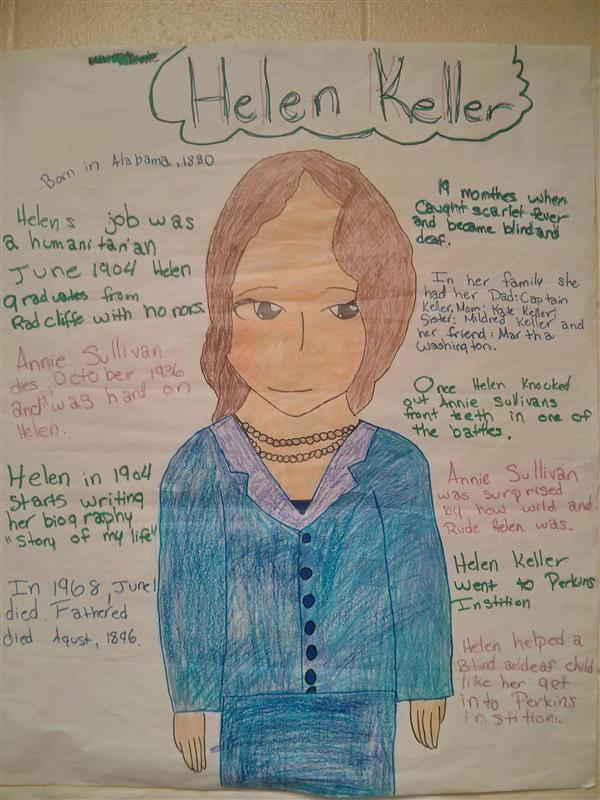 Helen Keller
Born in Alabama, 1880
Helens job was
a humanitarian
June 1904 Helen
graduates from
Radcliffe with honors.
Annie Sullivan
dies October 1936
and it was hard on
Helen.
Helen in 1904
starts writing
her biography
"Story of my life"
In 1968, June 1
died. Fathered
died Agust, 1896.
19 momthes when
Caught scarlet fever
and became blind and
deaf.
In her family she
had her Dad: Captain
Keller, Mom: Kate Keller,
Sister: Mildred Keller and
her friend: Martha
Washington.
Once Helen knocked
out Annie Sullivans
front teeth in one of
the battles.
Annie Sullivan
was surprised
by how wild and
Rude Helen was.
Helen Keller
went to Perkins
Instition
Helen helped a
Blind and deaf child
like her get
into Perkins
instition.